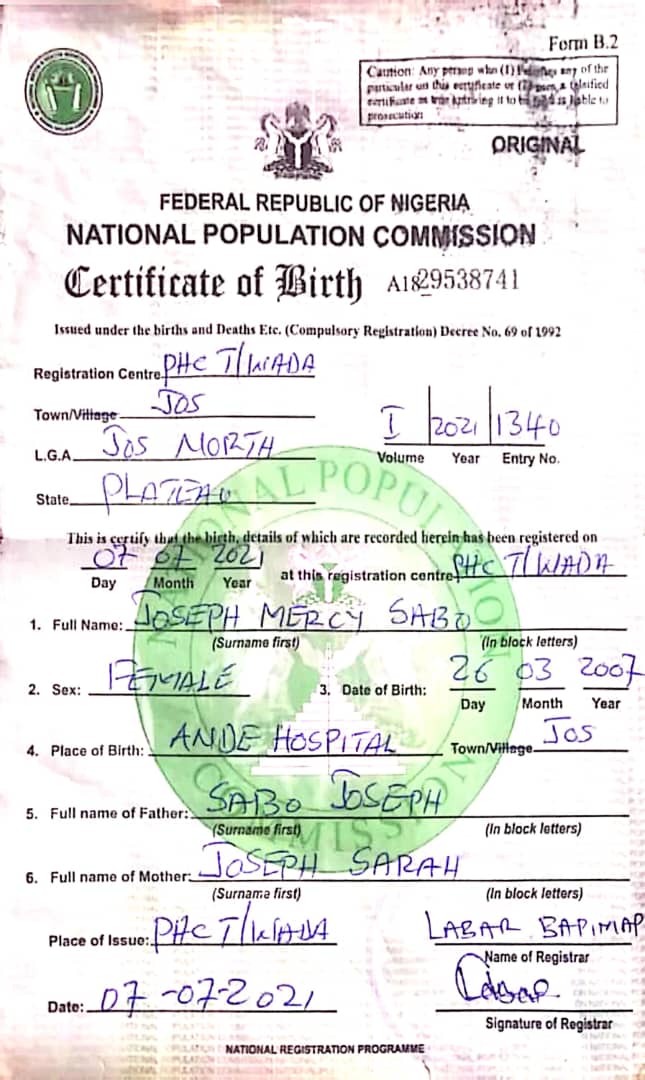 Form B.2
Caution: Any person who (1) Falsifies any of the
particular on this certificate or (2) uses a falsified
certificate as true knowing it to be false is liable to
prosecution
ORIGINAL
FEDERAL REPUBLIC OF NIGERIA
NATIONAL POPULATION COMMISSION
Certificate of Birth A1829538741
Issued under the births and Deaths Etc. (Compulsory Registration) Decree No. 69 of 1992
Registration Centre PHC T/WADA
Town/Village JOS
I 2021 1340
Volume Year Entry No.
L.G.A. JOS NORTH
State PLATEAU
This is certify that the birth, details of which are recorded herein has been registered on
07 07 2021 at this registration centre PHC T/WADA
Day Month Year
1. Full Name: JOSEPH MERCY SABO
(Surname first) (In block letters)
2. Sex: FEMALE 3. Date of Birth: 26 03 2007
Day Month Year
4. Place of Birth: ANDE HOSPITAL Town/Village JOS
5. Full name of Father: SABO JOSEPH
(Surname first) (In block letters)
6. Full name of Mother: JOSEPH SARAH
(Surname first) (In block letters)
Place of Issue: PHC T/WADA LABAR BAPIMAP
Name of Registrar
Date: 07-07-2021
Signature of Registrar
NATIONAL REGISTRATION PROGRAMME
NATIONAL POPULATION COMMISSION